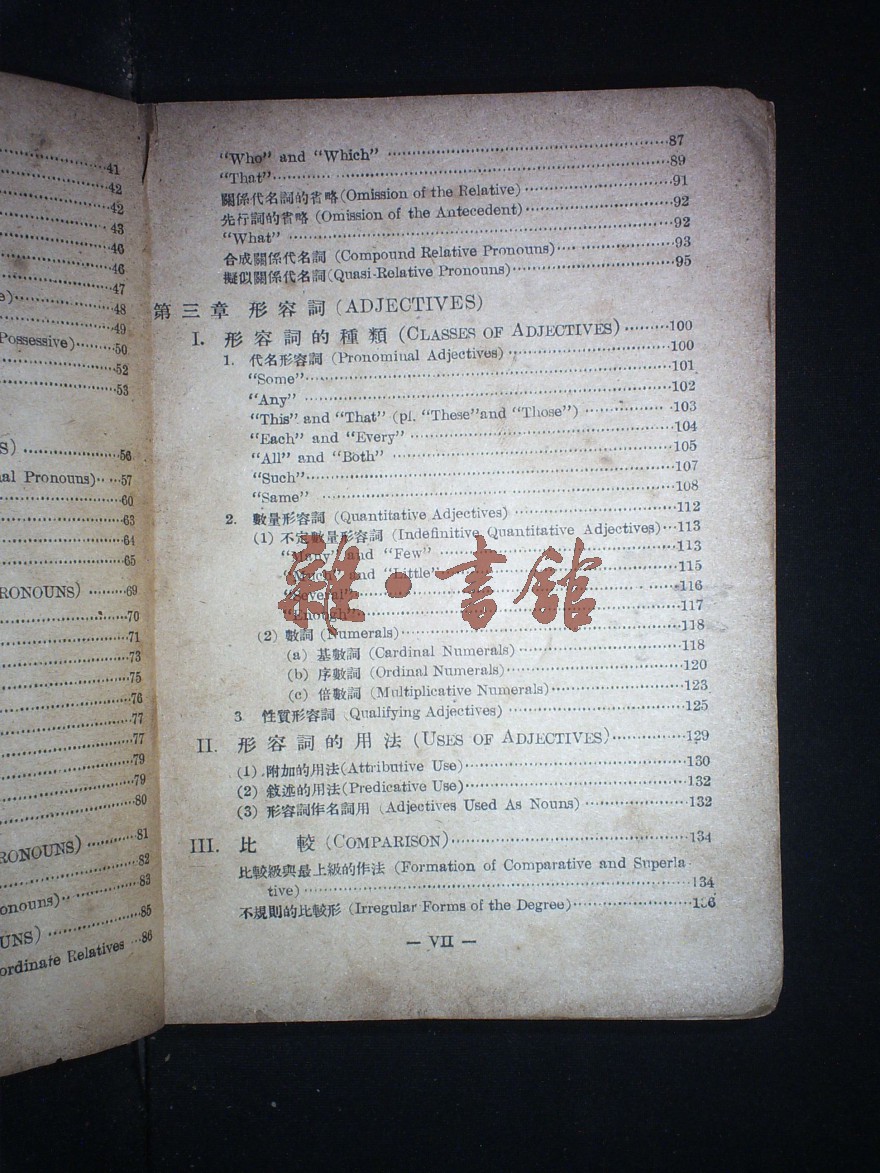 41
42
42
43
46
46
47
e)48
49
Possessive)50
52
53
S)56
al Pronouns)57
60
63
64
65
RONOUNS)69
70
71
73
75
76
77
77
79
79
80
RONOUNS)81
82
onouns)83
UNS)85
ordinate Relatives86
“Who” and “Which”87
“That”89
關係代名詞的省略(Omission of the Relative)91
先行詞的省略 (Omission of the Antecedent)92
“What”92
合成關係代名詞 (Compound Relative Pronouns)93
擬似關係代名詞(Quasi-Relative Pronouns)95
第三章 形容詞(ADJECTIVES)
I. 形容詞的種類(CLASSES OF ADJECTIVES)100
1. 代名形容詞 (Pronominal Adjectives)100
“Some”101
“Any”102
“This” and “That” (pl. “These”and “Those”)103
“Each” and “Every”104
“All” and “Both”105
“Such”107
“Same”108
2. 數量形容詞 (Quantitative Adjectives)112
(1) 不定數量形容詞 (Indefinitive Quantitative Adjectives)113
“Many” and “Few”113
“Much” and “Little”115
“Several”116
“Enough”117
雜·書館
(2) 數詞 (Numerals)118
(a) 基數詞 (Cardinal Numerals)118
(b) 序數詞 (Ordinal Numerals)120
(c) 倍數詞 (Multiplicative Numerals)123
3 性質形容詞 (Qualifying Adjectives)125
II. 形容詞的用法 (USES OF ADJECTIVES)129
(1) 附加的用法(Attributive Use)130
(2) 敍述的用法(Predicative Use)132
(3) 形容詞作名詞用 (Adjectives Used As Nouns)132
III. 比較 (COMPARISON)134
比較級與最上級的作法 (Formation of Comparative and Superla
tive)134
不規則的比較形 (Irregular Forms of the Degree)136
— VII —